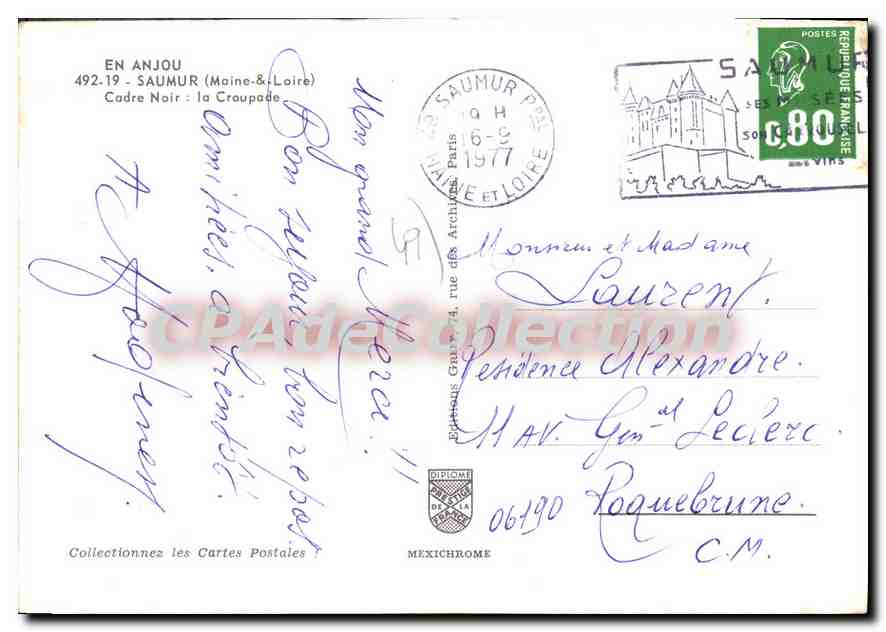 EN ANJOU
492-19 - SAUMUR (Maine-&-Loire)
Cadre Noir : la Croupade
Mon grand Merci !
Bon séjour, bon repos.
amitiés, a bientôt.
49
Editions Gaby, 74, rue des Archives, Paris
49 SAUMUR PPAL
19 H
16-9
1977
MAINE ET LOIRE
SAUMUR
SES MUSÉES
SON CARROUSEL
SES VINS
POSTES
REPUBLIQUE FRANÇAISE
0,80
Monsieur et Madame
Laurent.
Résidence Alexandre.
11 AV. Gén-al Leclerc.
06190 Roquebrune.
C.M.
DIPLOME
PRESTIGE
DE LA
FRANCE
MEXICHROME
Collectionnez les Cartes Postales
CPAdeCollection